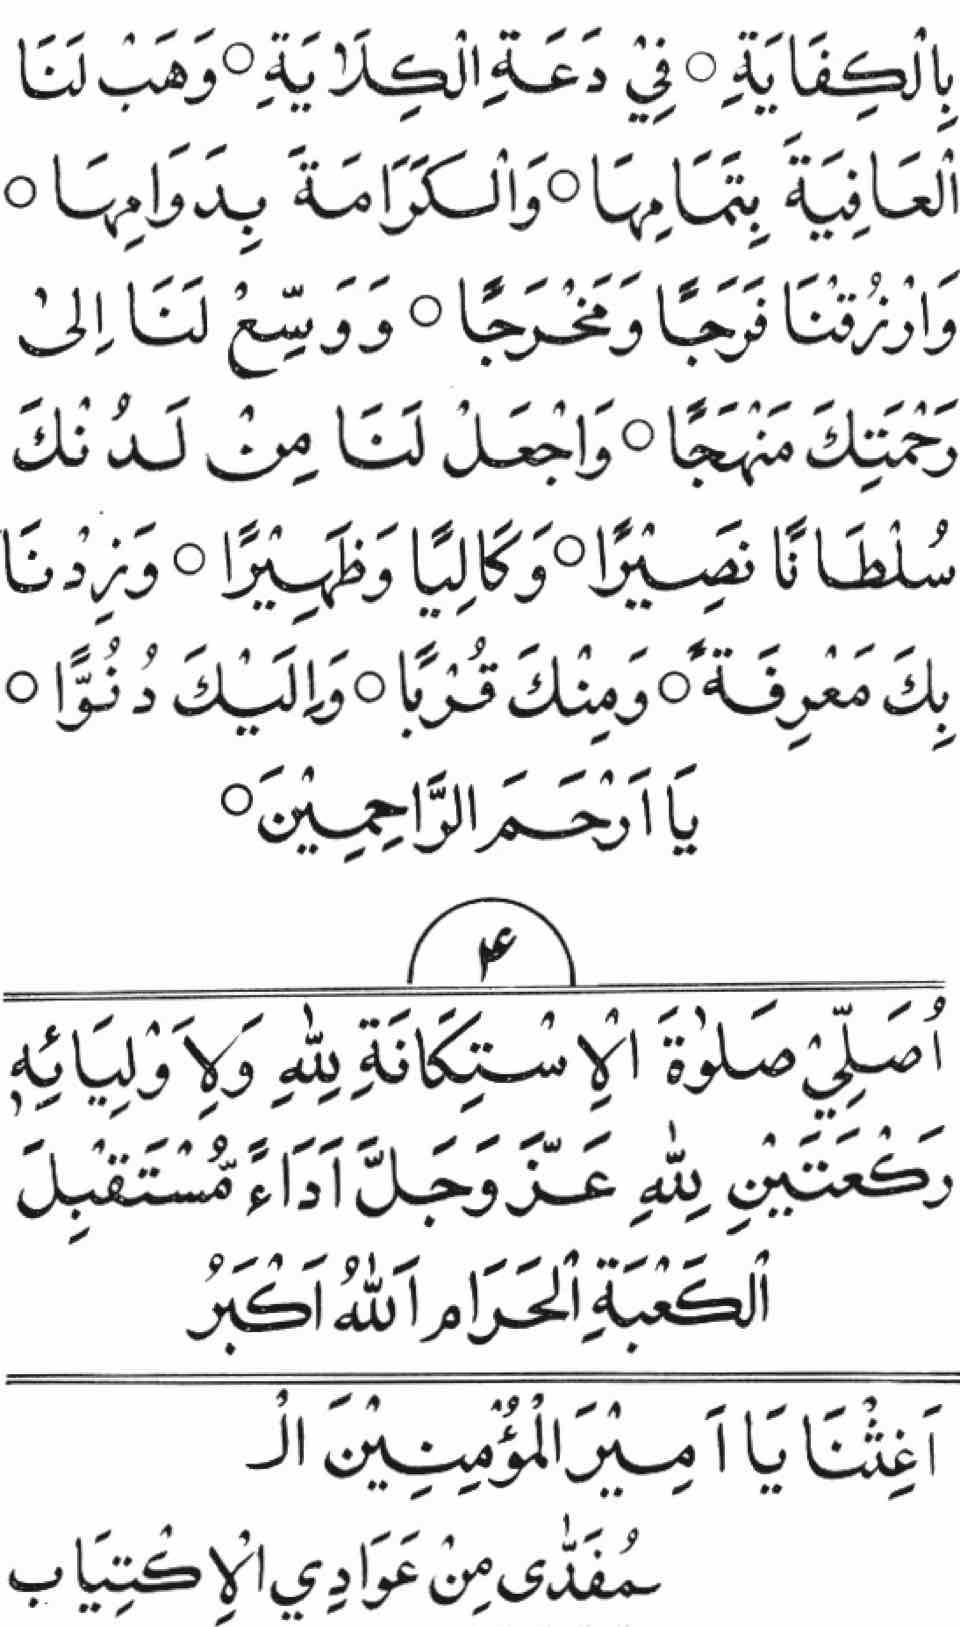 بِالْكِفَايَةِ ○ فِيْ دَعَةِ الْكِلَايَةِ ○ وَهَبْ لَنَا
الْعَافِيَةَ بِتَمَامِهَا ○ وَالْكَرَامَةَ بِدَوَامِهَا ○
وَارْزُقْنَا فَرَجًا وَمَخْرَجًا ○ وَوَسِّعْ لَنَا اِلىٰ
رَحْمَتِكَ مَنْهَجًا ○ وَاجْعَلْ لَنَا مِنْ لَدُنْكَ
سُلْطَانًا نَصِيْرًا ○ وَكَالِيًا وَظَهِيْرًا ○ وَزِدْنَا
بِكَ مَعْرِفَةً ○ وَمِنْكَ قُرْبًا ○ وَاِلَيْكَ دُنُوًّا ○
يَا اَرْحَمَ الرَّاحِمِيْنَ ○
۴
اُصَلِّيْ صَلٰوةَ الْاِسْتِكَانَةِ لِلّٰهِ وَلِاَوْلِيَائِهٖ
رَكْعَتَيْنِ لِلّٰهِ عَزَّ وَجَلَّ اَدَاءً مُّسْتَقْبِلَ
الْكَعْبَةِ الْحَرَام اَللّٰهُ اَكْبَرُ
اَغِثْنَا يَا اَمِيْرَ الْمُؤْمِنِيْنَ الْـ
ـمُفَدّٰى مِنْ عَوَادِي الْاِكْتِيَاب